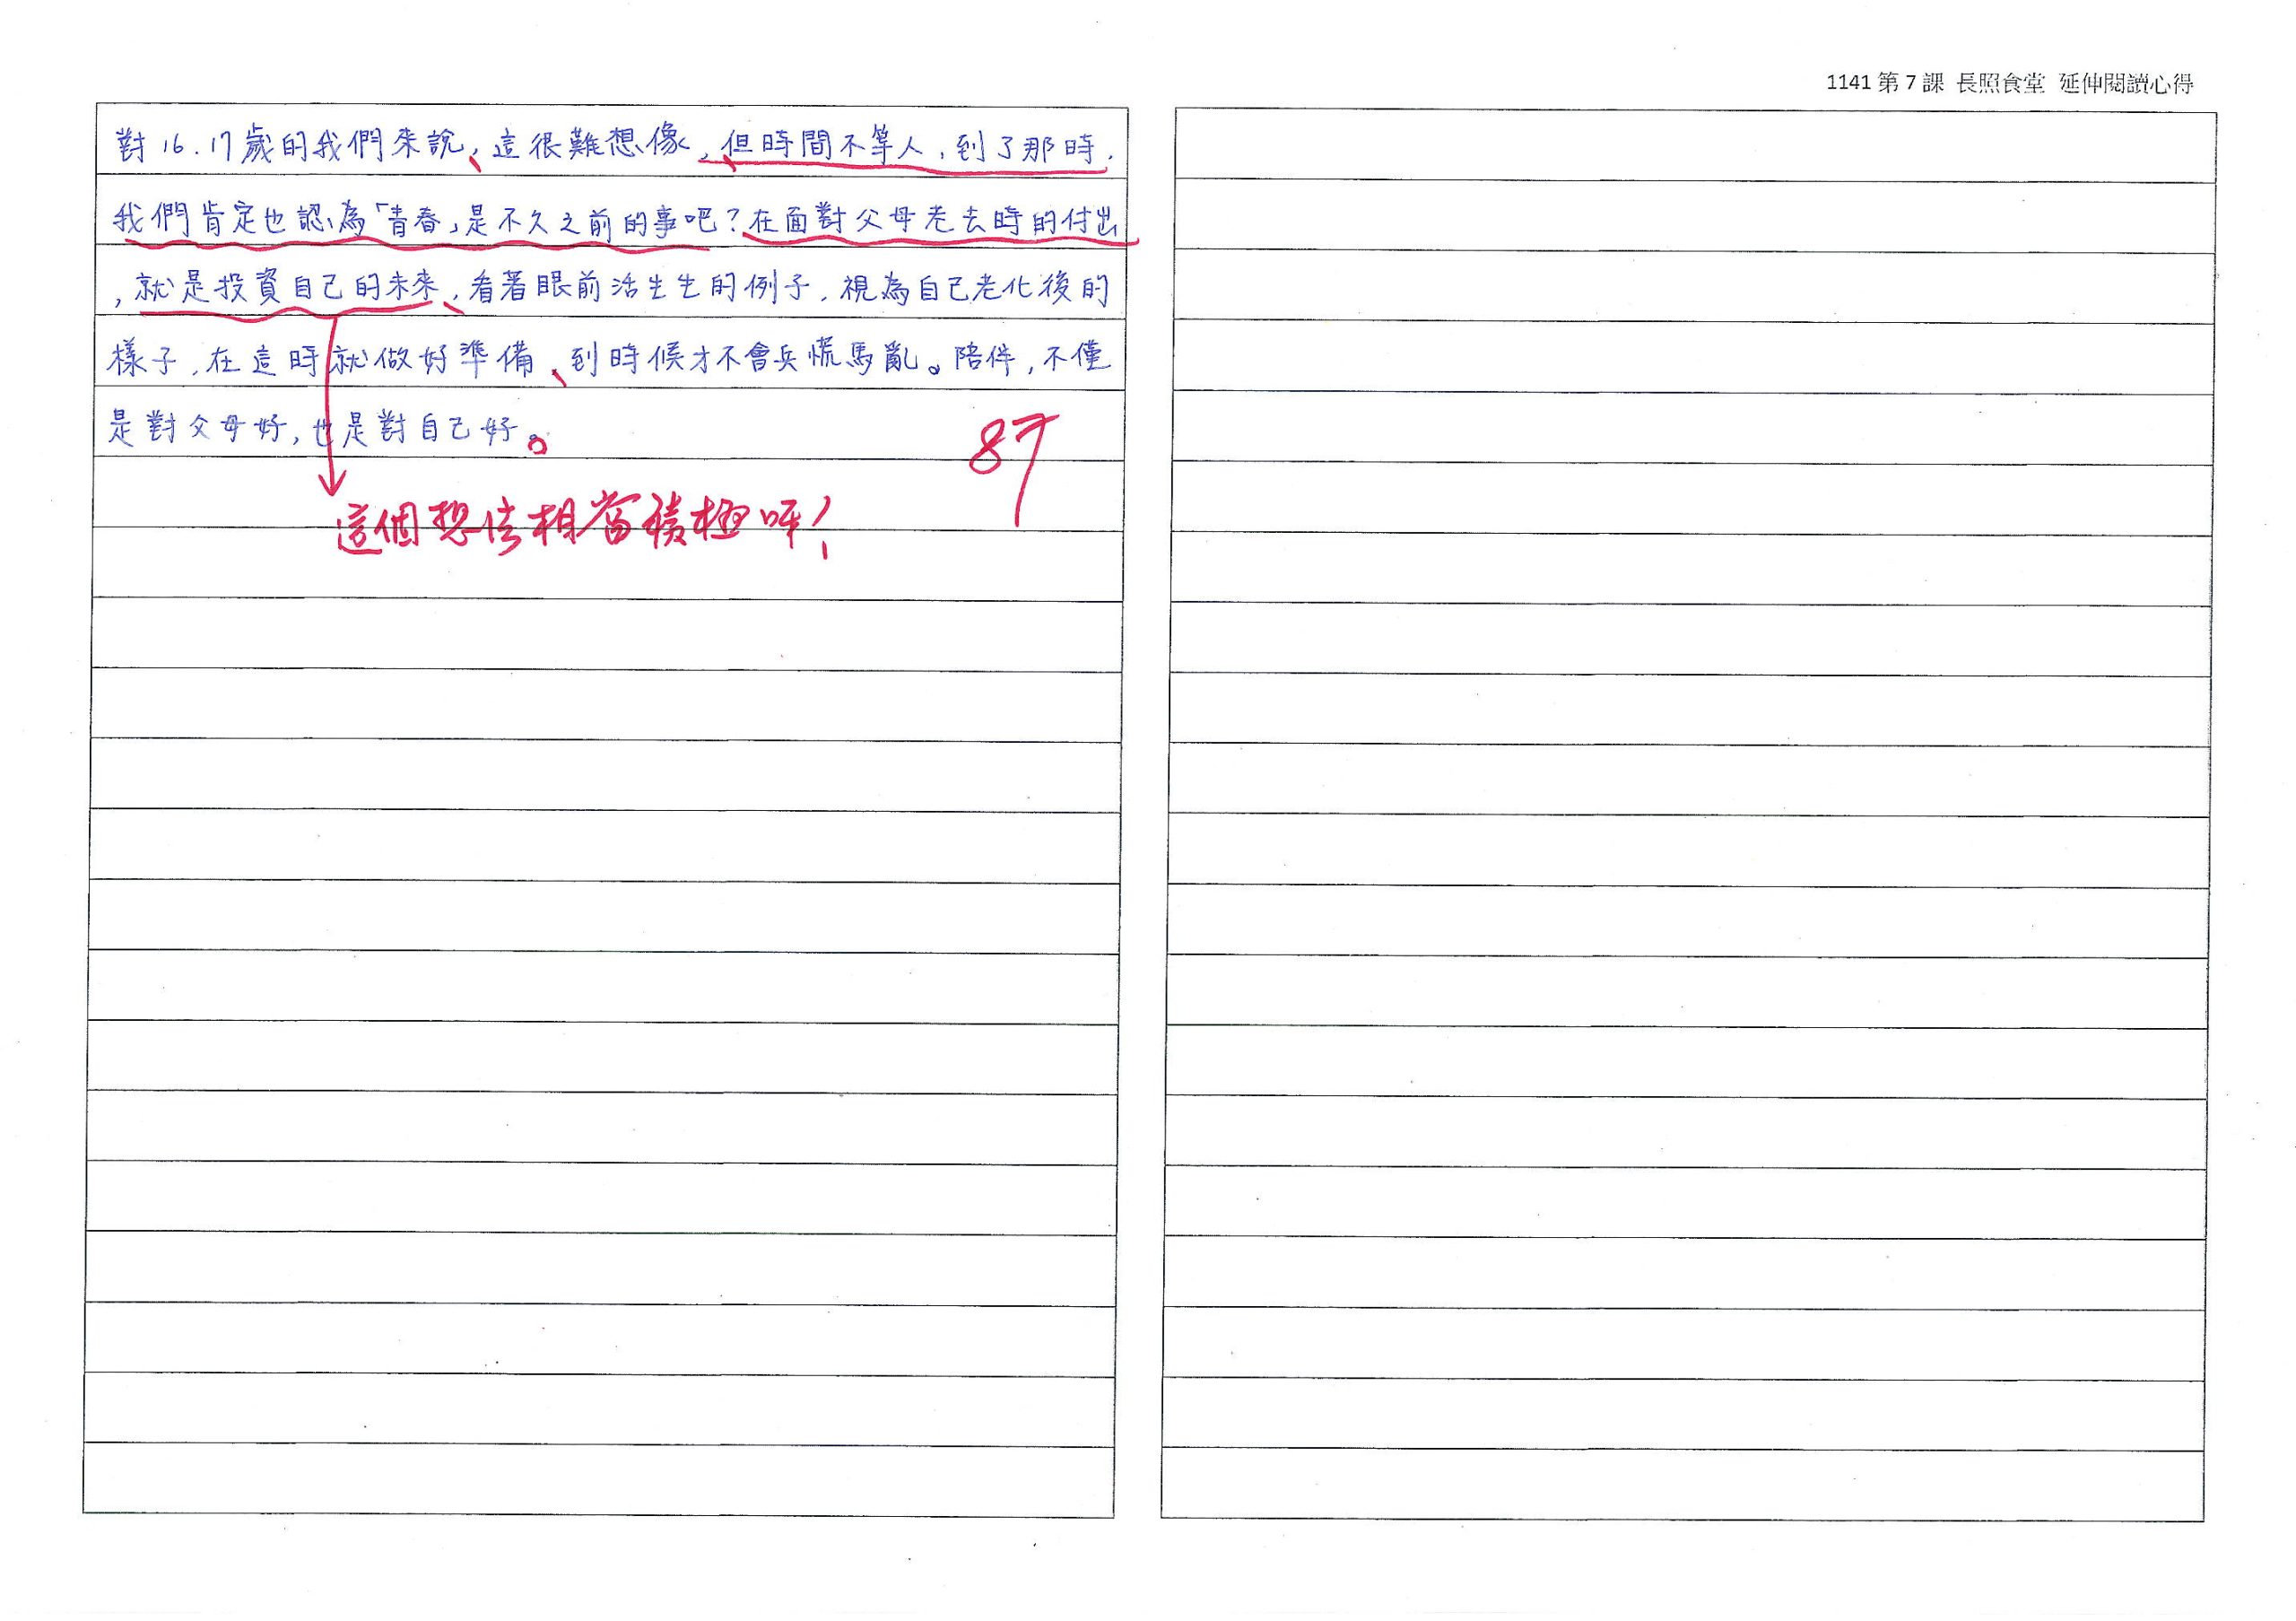 1141 第 7 課 長照食堂 延伸閱讀心得
對16.17歲的我們來說、這很難想像,但時間不等人,到了那時,
我們肯定也認為「青春」是不久之前的事吧?在面對父母老去時的付出
,就是投資自己的未來、看著眼前活生生的例子,視為自己老化後的
樣子,在這時就做好準備、到時候才不會兵慌馬亂。陪伴,不僅
是對父母好,也是對自己好。
87
這個想法相當積極呀!